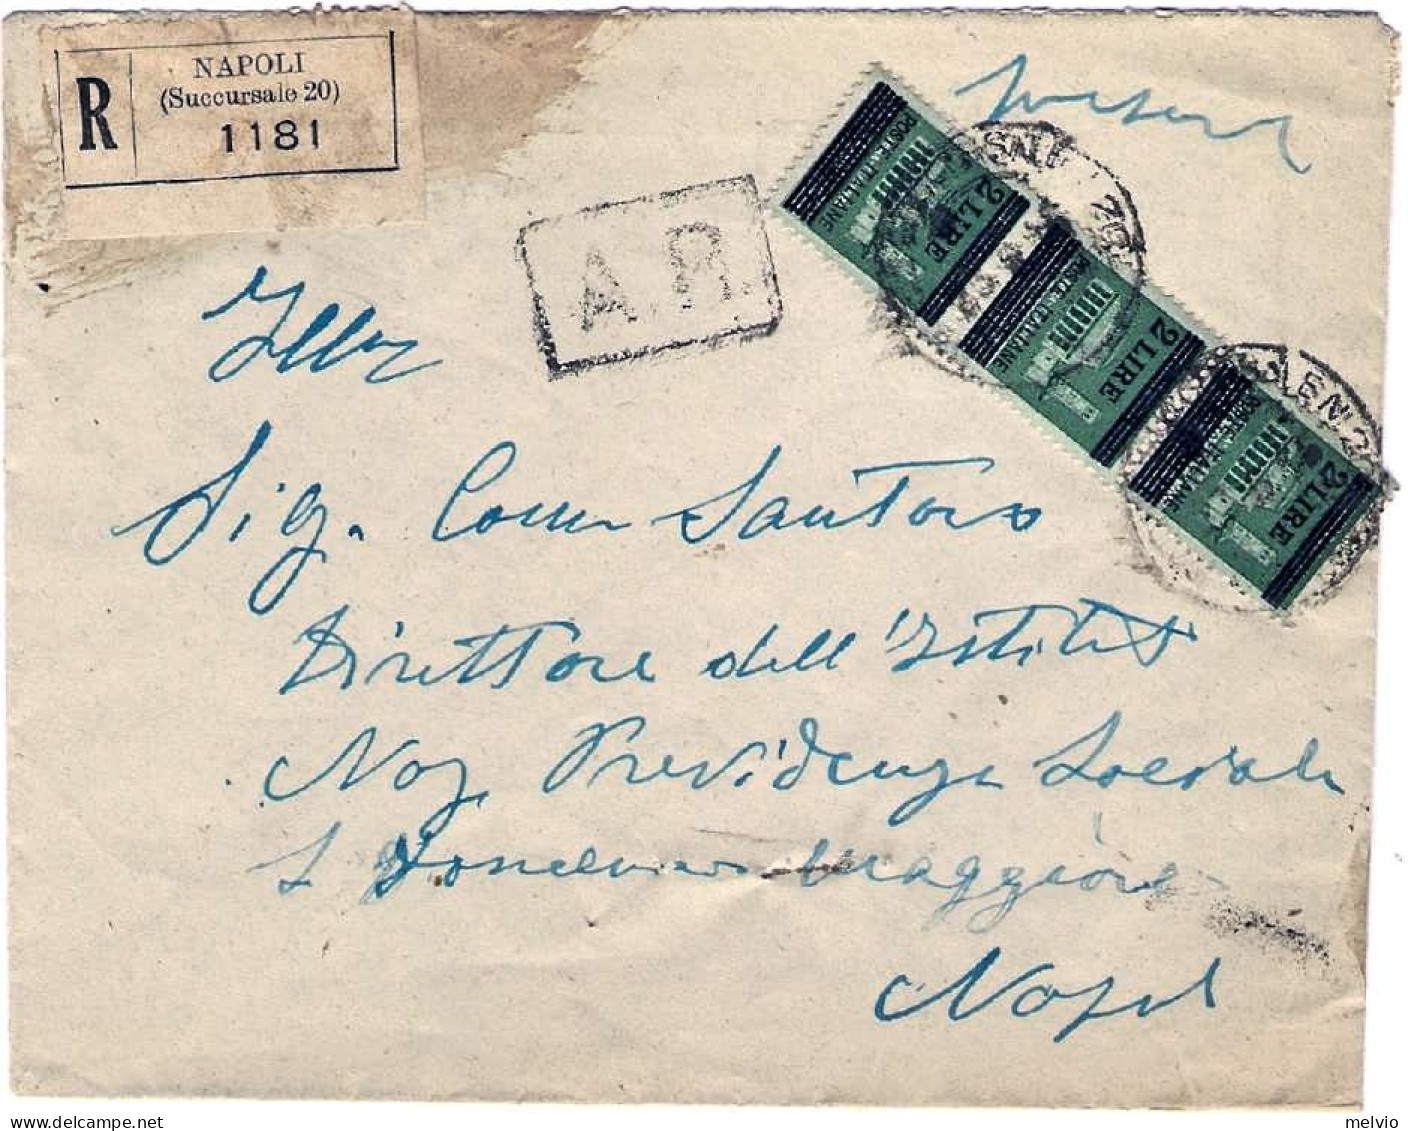 NAPOLI
(Succursale 20)
R
1181
A.R.
2 LIRE
POSTE ITALIANE
2 LIRE
POSTE ITALIANE
2 LIRE
POSTE ITALIANE
Ill
Sig. Comm Santoro
Direttore dell'Istituto
Naz. Previdenza Sociale
Maggiore
Napoli
melvio